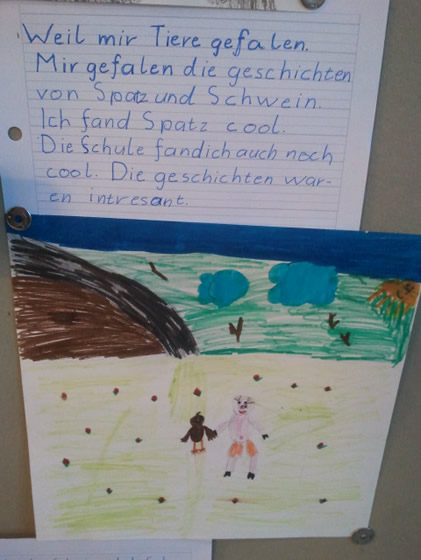 Weil mir Tiere gefalen.
Mir gefalen die geschichten
von Spatz und Schwein.
Ich fand Spatz cool.
Die Schule fand ich auch noch
cool. Die geschichten war-
en intresant.